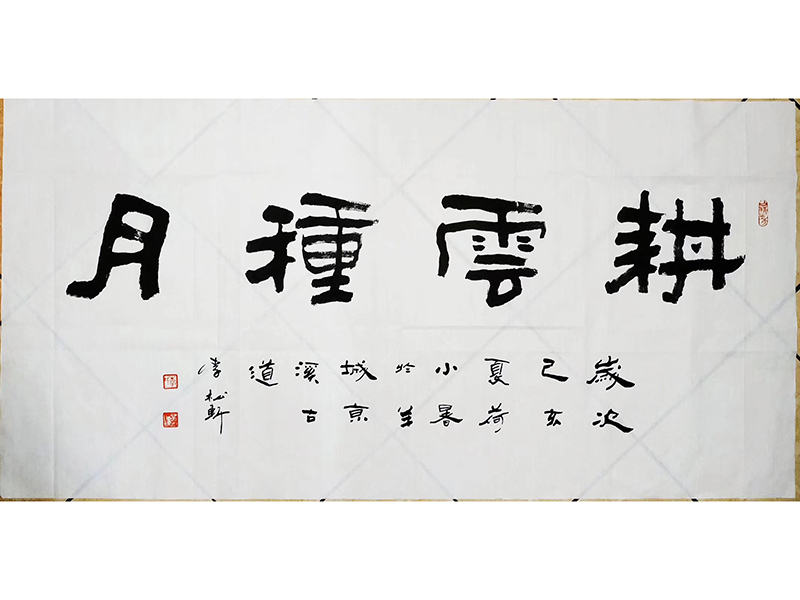 耕雲種月
歲次
己亥
夏荷
小暑
於羊
城京
溪古
道
李松軒